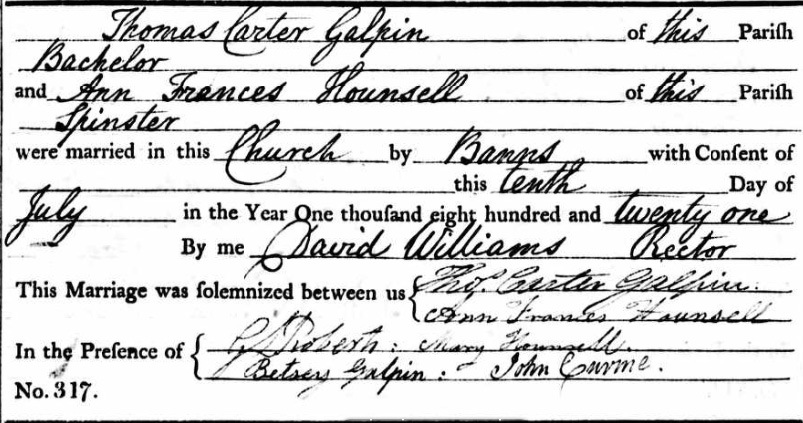 Thomas Carter Galpin of this Pariſh
Bachelor
and Ann Frances Hounsell of this Pariſh
Spinster
were married in this Church by Banns with Conſent of
this tenth Day of
July in the Year One thouſand eight hundred and twenty one
By me David Williams Rector
This Marriage was ſolemnized between us { Thos. Carter Galpin.
Ann Frances Hounsell
In the Preſence of { Roberts: Mary Hounsell.
Betsey Galpin: John Curme.
No. 317.